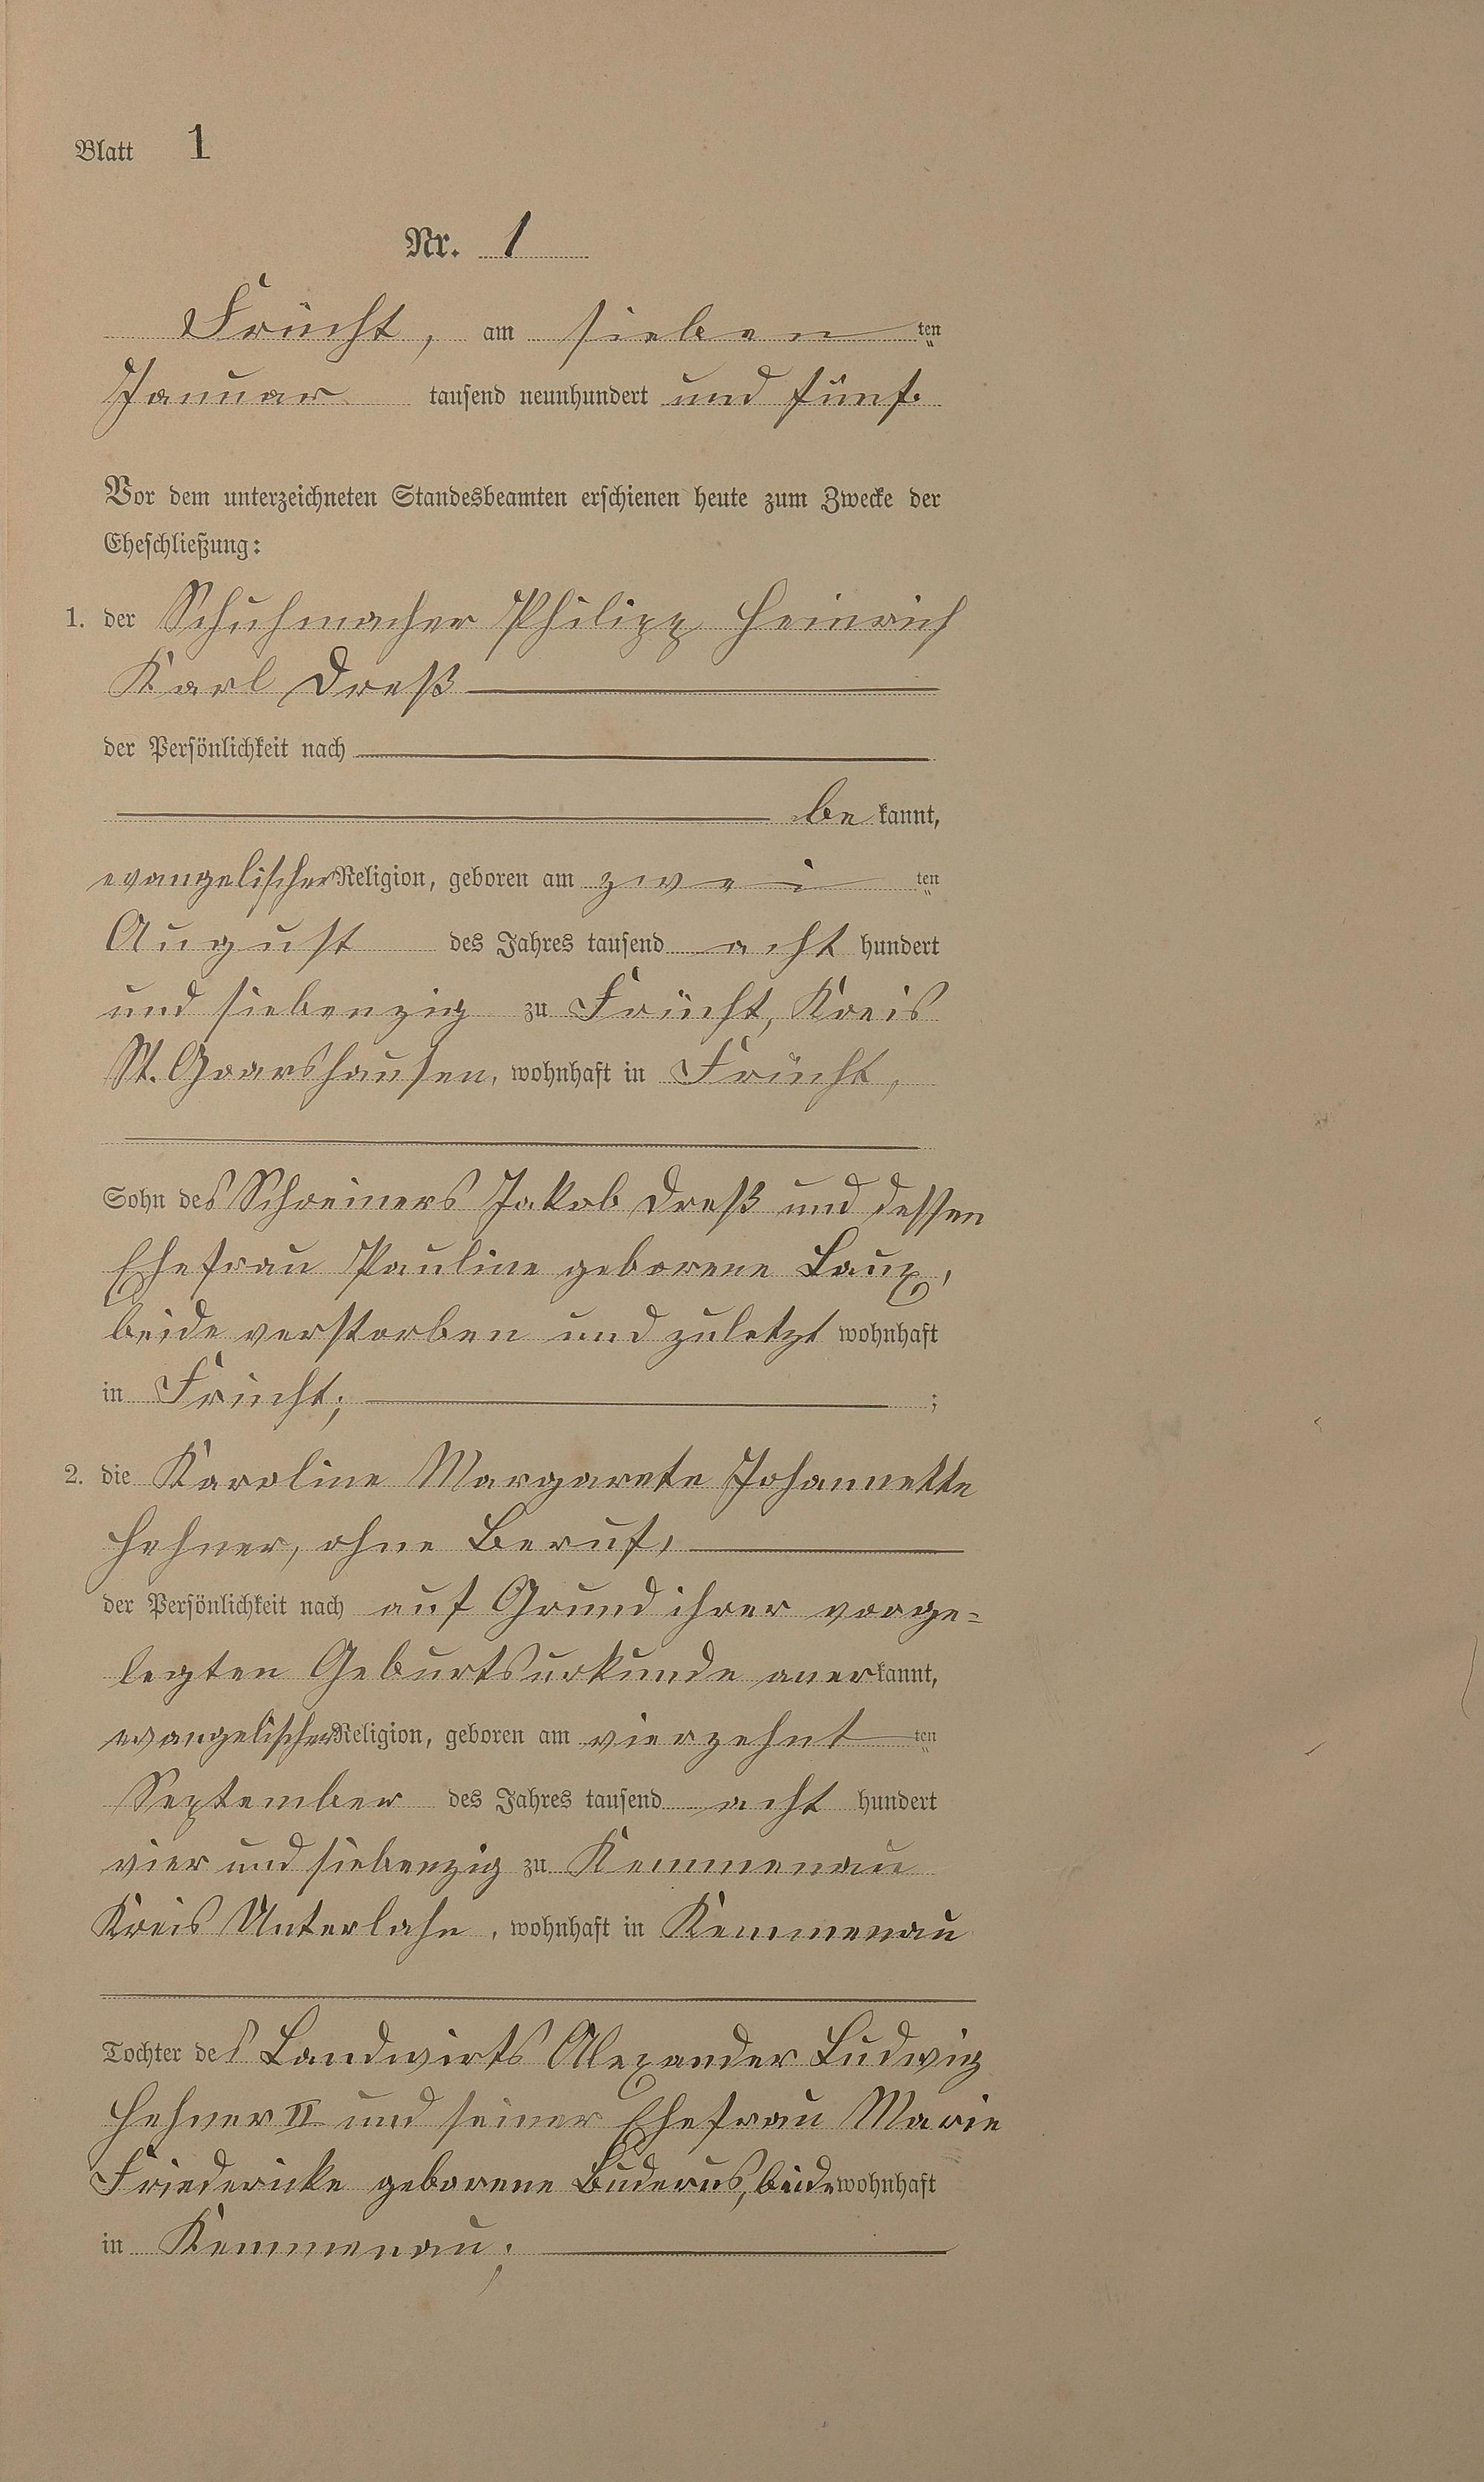 Blatt 1
Nr. 1
Frücht, am sieben ten
Januar tausend neunhundert und fünf.
Vor dem unterzeichneten Standesbeamten erschienen heute zum Zwecke der
Eheschließung:
1. der Schuhmacher Philipp Heinrich
Karl Dreß
der Persönlichkeit nach
be kannt,
evangelischer Religion, geboren am zwei ten
August des Jahres tausend acht hundert
und siebenzig zu Frücht, Kreis
St. Goarshausen, wohnhaft in Frücht,
Sohn des Schreiners Jakob Dreß und dessen
Ehefrau Pauline geborene Laux,
beide verstorben und zuletzt wohnhaft
in Frücht; ;
2. die Karoline Margarete Johannette
Hehner, ohne Beruf,
der Persönlichkeit nach auf Grund ihrer vorge=
legten Geburtsurkunde anerkannt,
evangelischer Religion, geboren am vierzehnt ten
September des Jahres tausend acht hundert
vier und siebenzig zu Kemmenau
Kreis Unterlahn, wohnhaft in Kemmenau
Tochter des Landwirts Alexander Ludwig
Hehner II und seiner Ehefrau Marie
Friedericke geborene Buderus, beide wohnhaft
in Kemmenau;